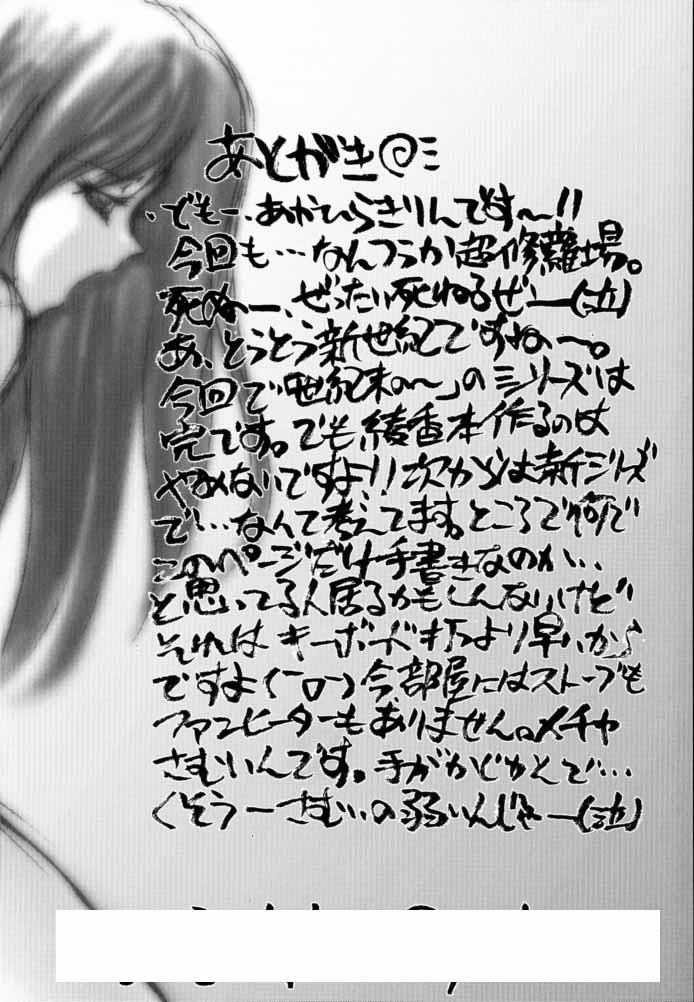 あとがき@ミ
、でもー、あかひらきりんです〜!!
今回も…なんつうか超修羅場。
死ぬー、ぜったい死ねるぜー(泣)
あ、とうとう新世紀ですね〜。
今回で「世紀末の〜」のシリーズは
完です。でも綾香本作るのは
やめないですよ!!次からは新シリーズ
で…なんて考えてます。ところで何で
このページだけ手書きなのか…
と思いてる人居るかもしんないけど
それはキーボード打つより早いから
ですよ(ーoー)今部屋にはストーブも
ファンヒーターもありません。メチャ
さむいんです。手がかじかんで…
くそうーさむいの弱いんじゃー(泣)